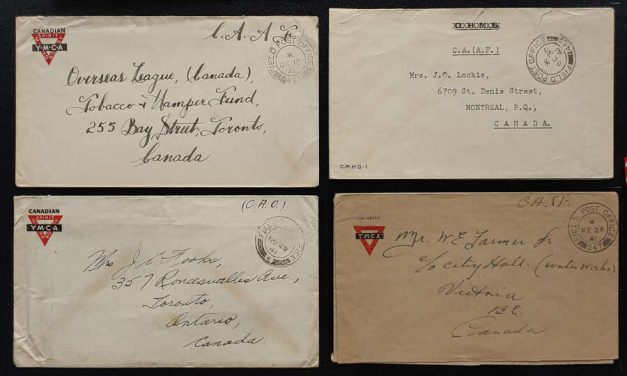 CANADIAN
SPIRIT
Y·M·C·A
C. A. A. F.
FIELD POST OFFICE
DE 16
41
Overseas League, (Canada),
Tobacco & Hamper Fund,
255 Bay Street, Toronto,
Canada.
C.A.(A.F.)
FIELD POST OFFICE
Mrs. J.O. Lockie,
6709 St. Denis Street,
MONTREAL, P.Q.,
CANADA.
C.M.H.Q.-1
CANADIAN
SPIRIT
YMCA
(C.A.O.)
NO 28
41
Mrs J. C. Fooks,
357 Roncesvalles Ave,
Toronto,
Ontario,
Canada.
CANADIAN
YMCA
FIELD POST OFFICE
FE 24
41
247
Mr. W.E. Farmer Jr
c/o City Hall. (waterworks)
Victoria
B.C.
Canada